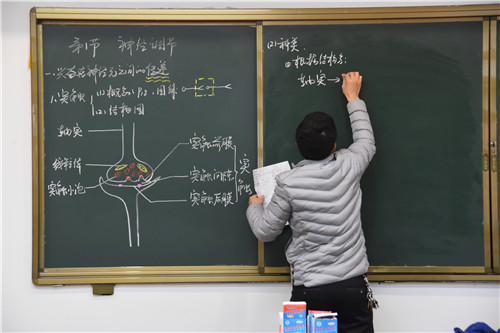 第1节 神经调节
一.兴奋在神经元之间的传递
1.突触
(1)概念:P2. 图
(2)结构图
轴突
线粒体
突触小泡
突触前膜
突触间隙
突触后膜
突触
(2)种类.
①根据结构分:
轴突→